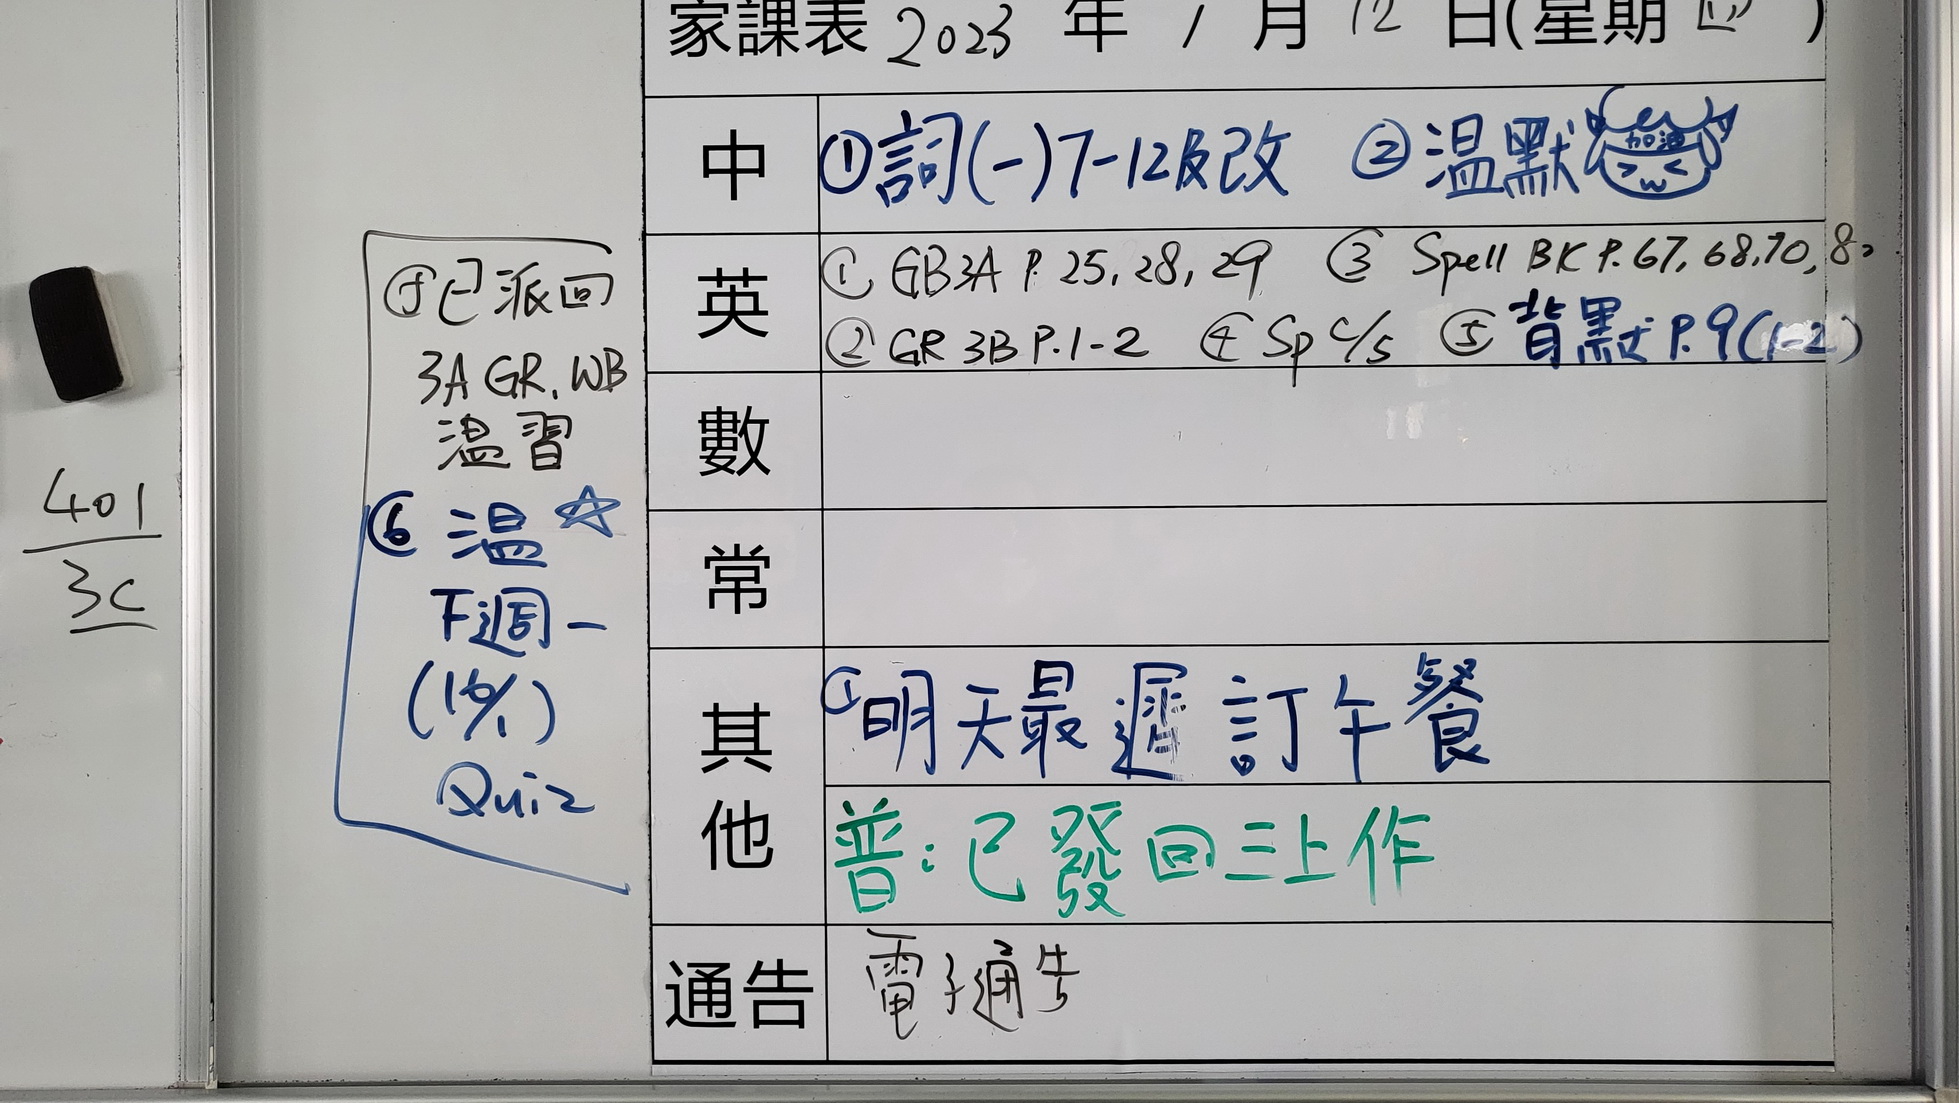 家課表 2023 年 1 月 12 日(星期 四 )
中
①詞(一)7-12及改 ②温默
加油
英
① GB3A P. 25, 28, 29 ③ Spell BK P. 67, 68, 70, 80
② GR 3B P. 1-2 ④ Sp c/s ⑤ 背默 P. 9 (1-2)
數
常
其他
①明天最遲訂午餐
普:已發回三上作
通告
電子通告
已派回
3A GR, WB
温習
⑥ 温 ☆
下週一
(16/1)
Quiz
401
3C